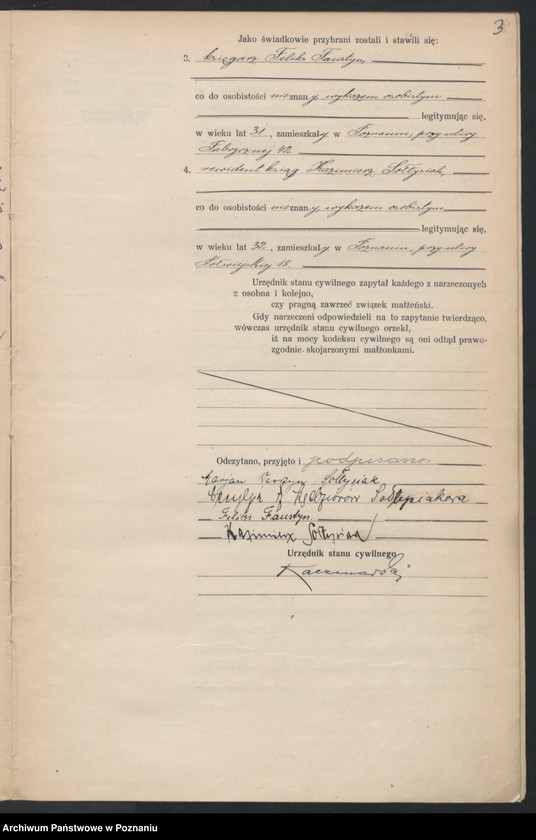 3
Jako świadkowie przybrani zostali i stawili się:
3. księgarz Feliks Faustyn,
co do osobistości nieznany, wykazem osobistym
legitymując się,
w wieku lat 31, zamieszkały w Poznaniu, przy ulicy
Fabrycznej 42.
4. rewident ksiąg Kazimierz Sołtysiak,
co do osobistości nieznany, wykazem osobistym
legitymując się,
w wieku lat 32, zamieszkały w Poznaniu, przy ulicy
18.
Urzędnik stanu cywilnego zapytał każdego z narzeczonych
z osobna i kolejno,
czy pragną zawrzeć związek małżeński.
Gdy narzeczeni odpowiedzieli na to zapytanie twierdząco,
wówczas urzędnik stanu cywilnego orzekł,
iż na mocy kodeksu cywilnego są oni odtąd prawo-
zgodnie skojarzonymi małżonkami.
Odczytano, przyjęto i podpisano.
Marjan Sołtysiak
Feliks Faustyn
Kazimierz Sołtysiak
Urzędnik stanu cywilnego
Kaczmarski
Archiwum Państwowe w Poznaniu